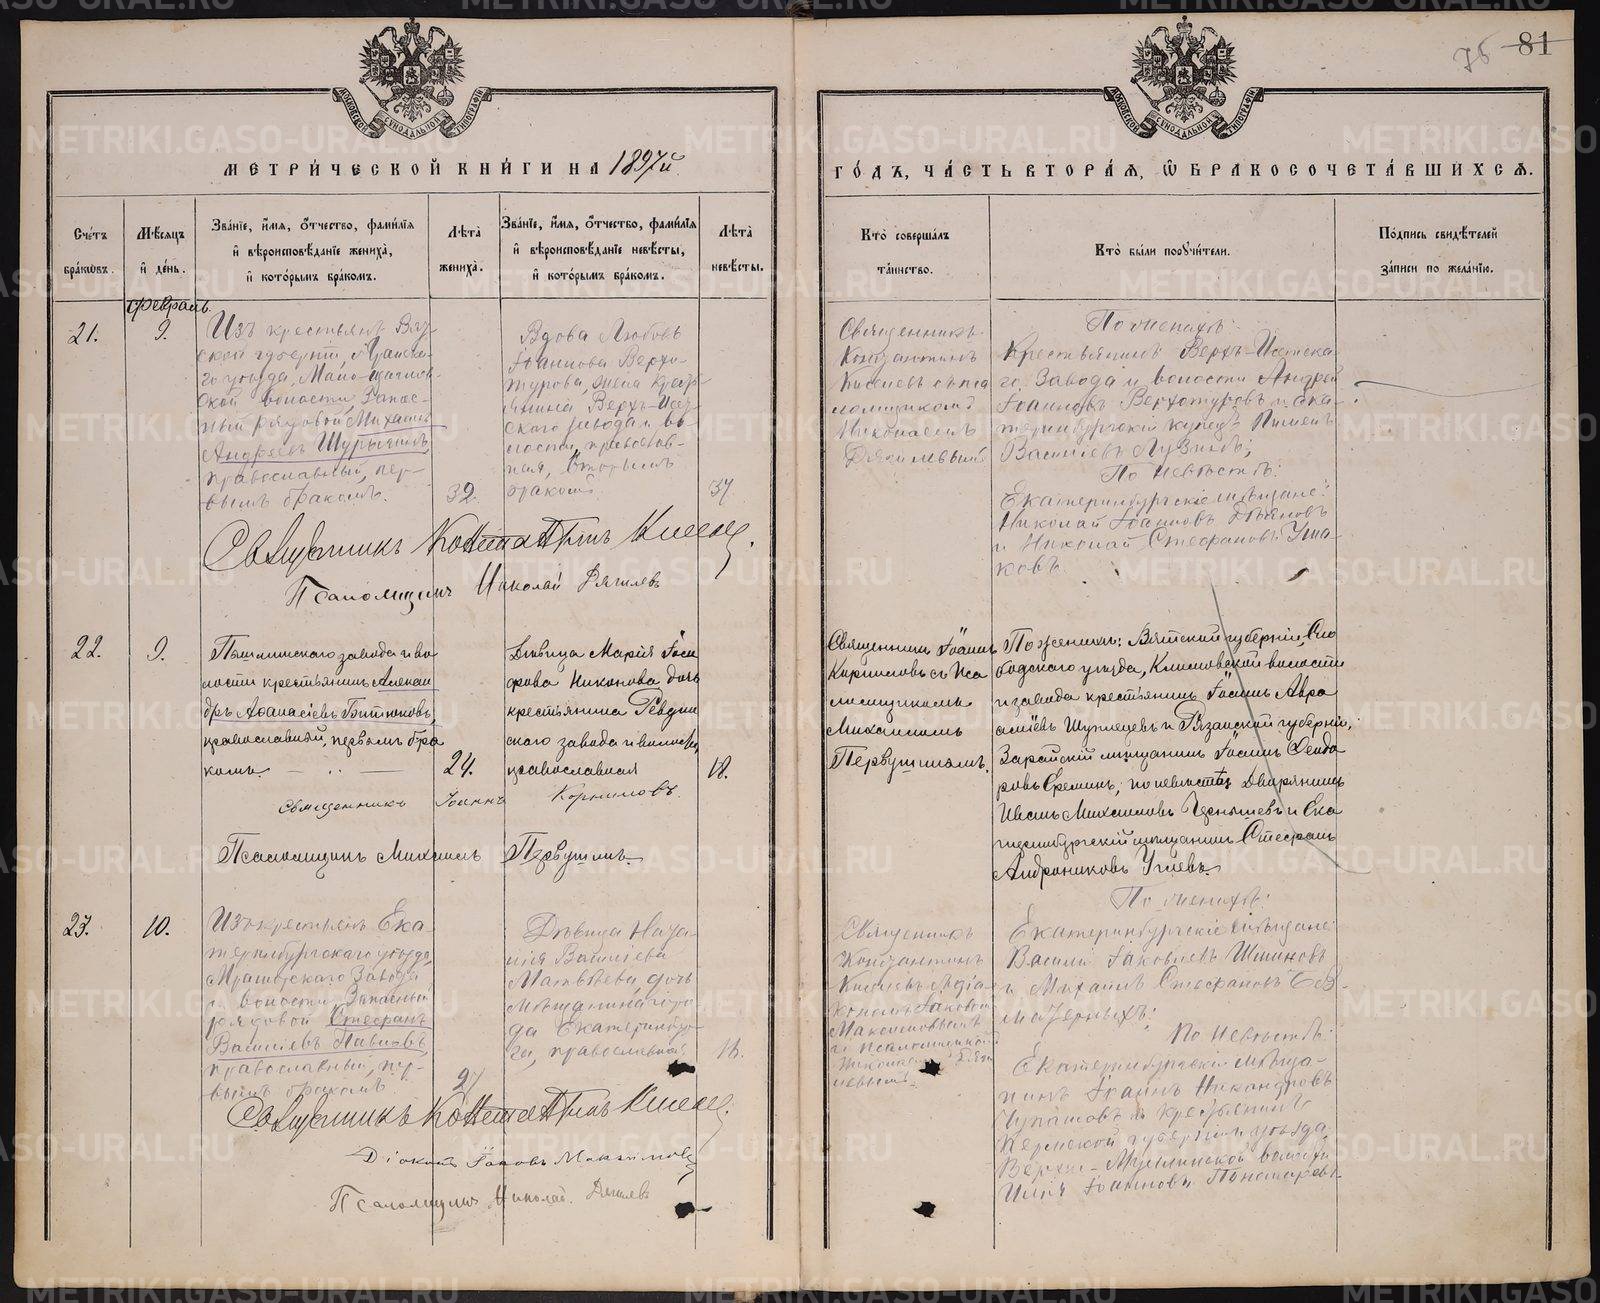 75 81
МЕТРИ́ЧЕСКОЙ КНИ́ГИ НА 1897й
ГО́ДЪ, ЧА́СТЬ ВТОРА́Я, Ѿ БРАКОСОЧЕТА́ВШИХСЯ.
Сче́тъ бра́кωвъ.
Мѣ́сяцъ и҆ де́нь.
Зва́нїе, и҆́мя, ѻ҆́тчество, фами́лїя
и҆ вѣроисповѣ́данїе жениха̀,
и҆ кото́рымъ бра́комъ.
Лѣ́та̀ жениха̀.
Зва́нїе, и҆́мя, ѻ҆́тчество, фами́лїя
и҆ вѣроисповѣ́данїе невѣ́сты,
и҆ кото́рымъ бра́комъ.
Лѣ́та̀ невѣ́сты.
Кто̀ соверша́лъ та́инство.
Кто̀ бы́ли порꙋчи́тели.
По́дпись свидѣ́телей за́писи по жела́нїю.
Февраль
21.
9.
Изъ крестьянъ Вят-
ской губерніи,
го уѣзда,
ской волости, Запас-
ный рядовой Михаилъ
Андреевъ
православный, пер-
вымъ бракомъ.
32
Вдова Любовь
Іоаннова Верхо-
турова, жена кресть-
янина Верхъ-Исет-
скаго завода и во-
лости, православ-
ная, вторымъ
бракомъ.
37
Священникъ
Константинъ
съ пса
ломщикомъ
Николаемъ
По женихѣ:
Крестьянинъ Верхъ-Исетска
го Завода и волости Андрей
Іоанновъ Верхотуровъ и Ека-
теринбургскій купецъ Пименъ
Васильевъ Лузинъ;
По невѣстѣ:
Екатеринбургскіе мѣщане:
Николай Іоанновъ
и Николай Стефановъ Уша-
ковъ
Священникъ Константинъ
Псаломщикъ Николай
22.
9.
Пышминскаго завода и во
лости крестьянинъ Алексан
дръ Аѳанасіевъ Битюковъ,
православный, первымъ бра
комъ
24.
Дѣвица Марія
Никонова дочь
крестьянина Ревдин
скаго завода и волости,
православная
18.
Священникъ Іоаннъ
Корниловъ съ Пса
ломщикомъ
Михаиломъ
Первушинымъ.
По женихѣ: Вятской губерніи, Сло
бодскаго уѣзда, Климковской волости
и завода крестьянинъ Іоаннъ Авра
аміевъ и Рязанской губерніи,
Зарайскій мѣщанинъ Іоаннъ Ѳеодо
ровъ Ереминъ; по невѣстѣ Дворянинъ
Иванъ Михаиловъ Чернышевъ и Ека
теринбургскій мѣщанинъ Стефанъ
Андрониковъ Углевъ.
Священникъ Іоаннъ Корниловъ.
Псаломщикъ Михаилъ Первушинъ.
23.
10.
Изъ крестьянъ Ека
теринбургскаго уѣзда,
Мраморскаго Завода
и волости, Запасный
рядовой Стефанъ
Василіевъ Павловъ,
православный, пер-
вымъ бракомъ
27
Дѣвица Ната
лія Василіева
Матвѣева, дочь
мѣщанина горо-
да Екатеринбур-
га, православная
18.
Священникъ
Константинъ
съ діа
кономъ Іаковомъ
Максимовымъ
и псаломщикомъ
Николаемъ
По женихѣ:
Екатеринбургскіе мѣщане:
Василій Іаковлевъ Шишовъ
и Михаилъ Стефановъ Без-
матерныхъ;
По невѣстѣ:
Екатеринбургскій мѣща-
нинъ Іоаннъ Никандровъ
Чупановъ и крестьянинъ
Пермской губерніи и уѣзда
Верхне-Муллинской волости
Илья Іоанновъ Пономаревъ.
Священникъ Константинъ
Діаконъ Іаковъ Максимовъ
Псаломщикъ Николай
METRIKI.GASO-URAL.RU